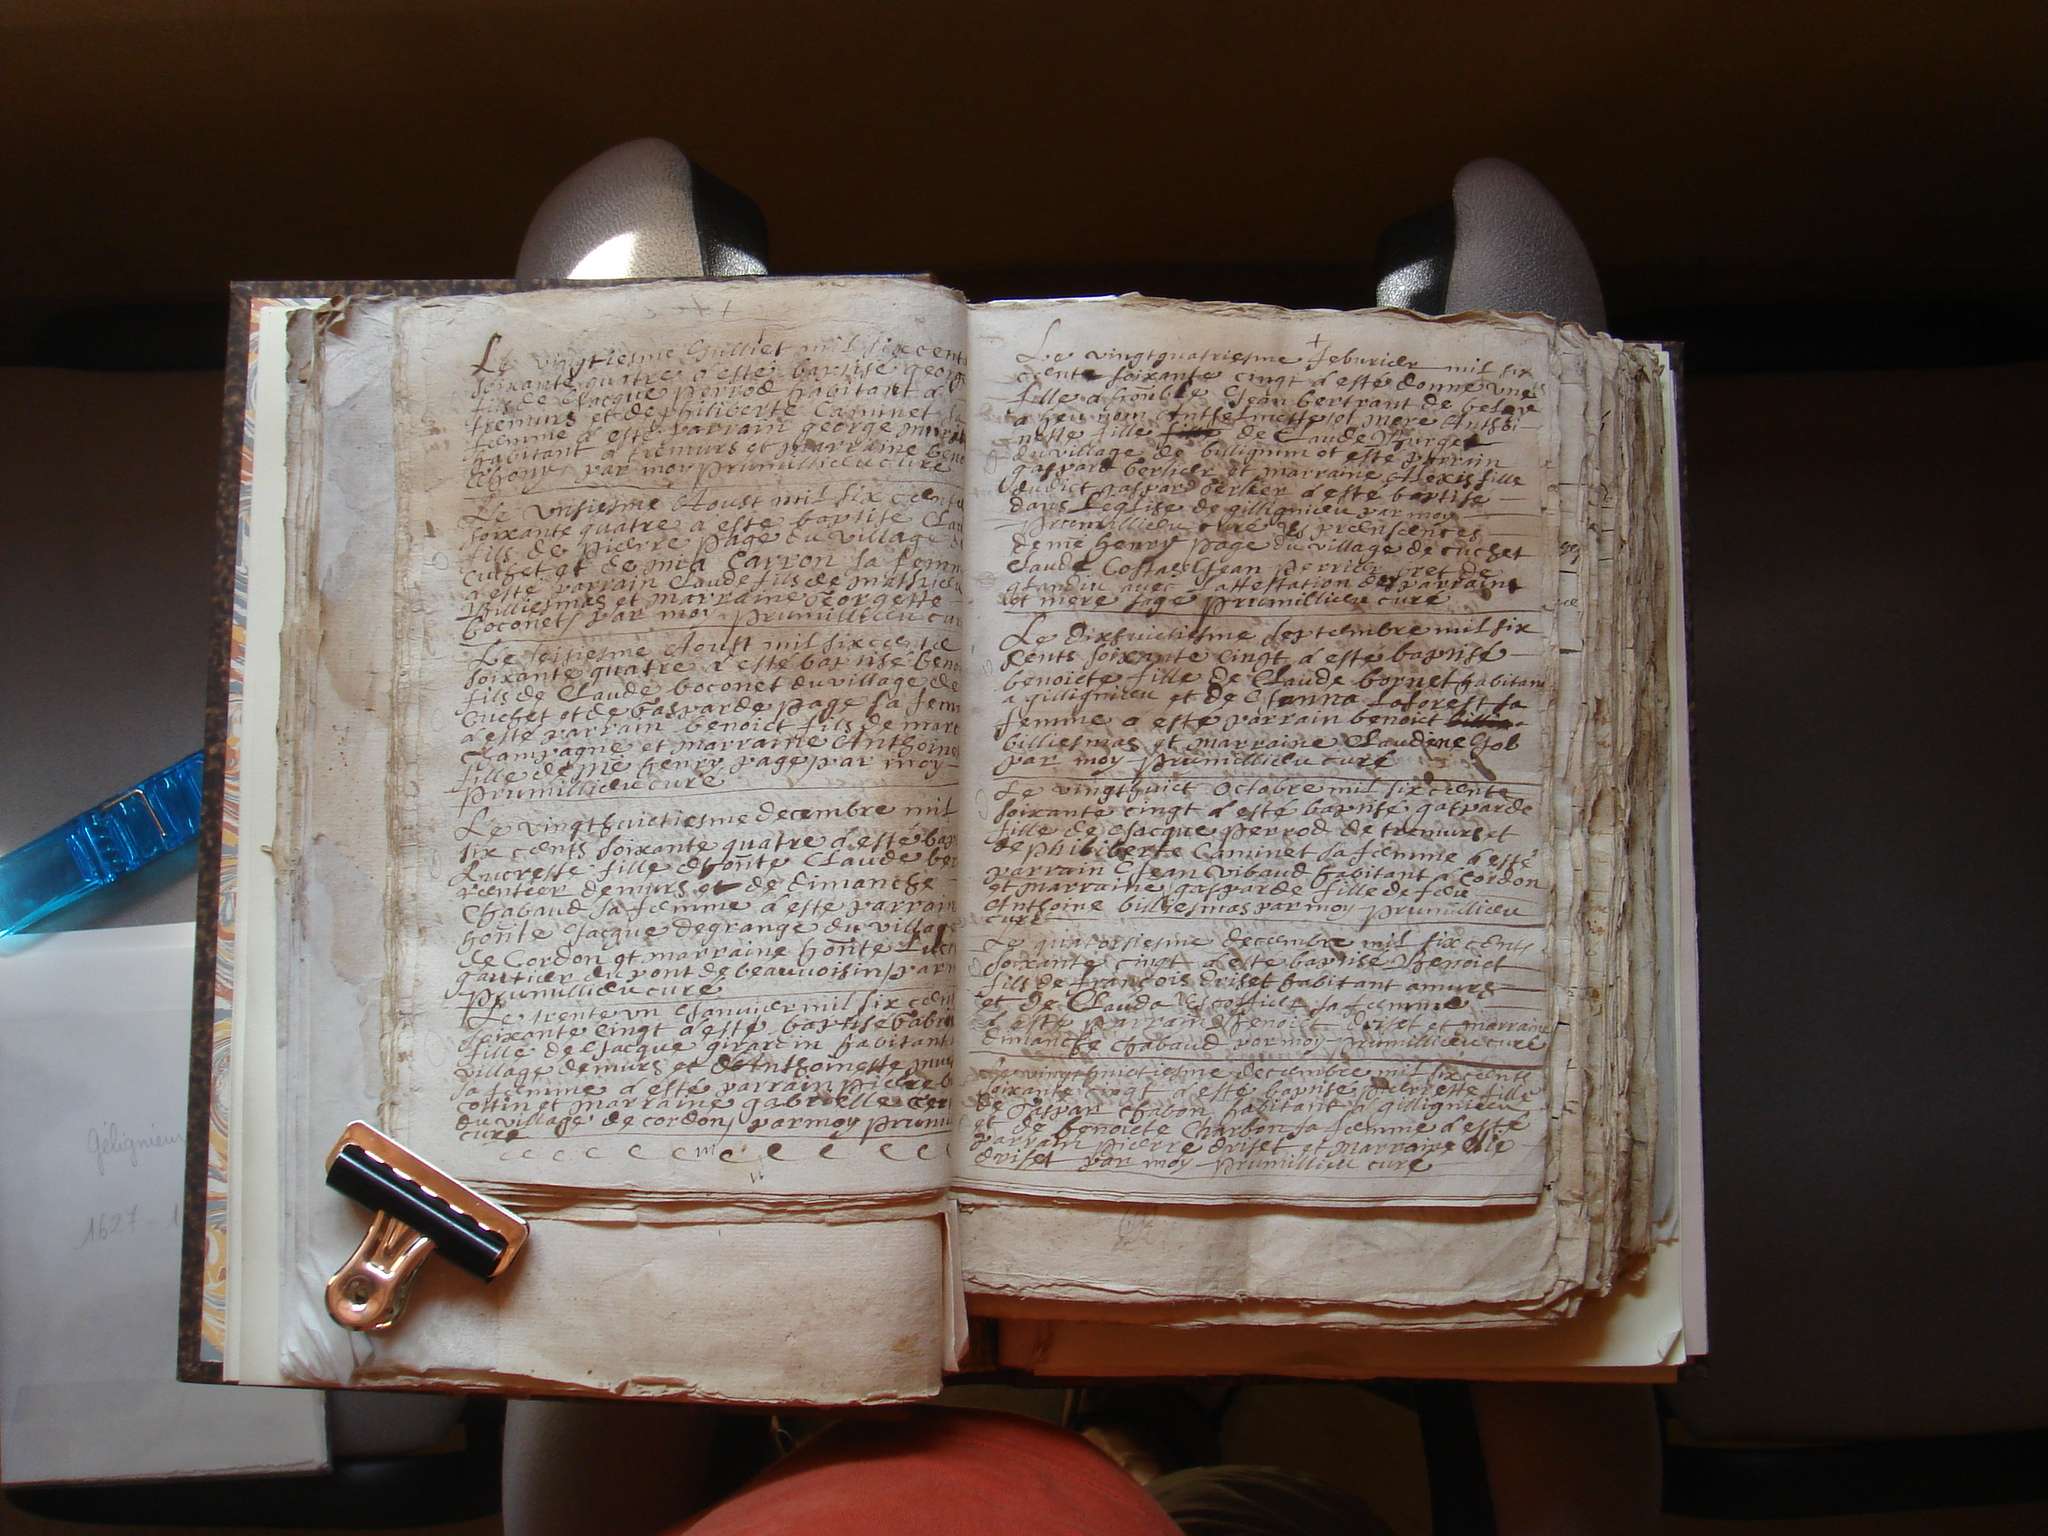 Le vingtiesme Juilliet mil six cents
soixante quatre a esté baptisé george
fils de Jacque perrod habitant a
tremurs et de philiberte Caminet sa
femme a esté parrain george
habitant a tremurs et marraine
par moy prumillieu curé
Le unsiesme Aoust mil six cents
soixante quatre a esté baptisé Clau
fils de pierre page du village de
Cuchet et de mia Carron sa femme
a esté parrain Claude fils de mathieu
billiesmas et marraine georgette
boconet par moy prumillieu cur
Le seisiesme Aoust mil six cents
soixante quatre a esté baptisé beno
fils de Claude boconet du village de
Cuchet et de gasparde page sa femm
a esté parrain benoict fils de mart
Champagne et marraine Anthoine
fille de me henry page par moy
prumillieu curé
Le vingthuictiesme decembre mil
six cents soixante quatre a esté bap
Lucresse fille d'honte Claude ber
rentier de murs et de dimanche
Chabaud sa femme a esté parrain
honte Jacque degrange du village
de Cordon et marraine honte Lucr
gautier du pont de beauvoisin par m
prumillieu curé
Le trente un Janvier mil six cent
soixante cinqt a esté baptisé gabri
fille de Jacque girardin habitant
village de murs et d'Anthoinette
sa femme a esté parrain pierre
cottin et marraine gabrielle
du village de cordon par moy prumi
curé
Le vingtquatriesme feburier mil six
cents soixante cinqt a esté donné une
fille a Jean bertrant de
a heu nom mere Anthoi-
nette fille de Claude
du village de et esté parrain
gaspard berlier et marraine Alexis fille
dudict gaspard berlier a esté baptisé
dans l'eglise de gillignieu par moy
prumillieu curé es presences
de me henry page du village de cuchet
Claude Jean perrier et de
avec l'attestation des parrain
et mere sage prumillieu curé
Le dixhuictiesme septembre mil six
cents soixante cinqt a esté baptisé
benoicte fille de Claude bornet habitant
a gillignieu et de Janna laforest sa
femme a esté parrain benoict
billiesmas et marraine Claudine Job
par moy prumillieu curé
Le vingthuict Octobre mil six cents
soixante cinqt a esté baptisé gasparde
fille de Jacque perrod de tremurs et
de philiberte Caminet sa femme a esté
parrain Jean vibaud habitant a Cordon
et marraine gasparde fille de feu
Anthoine billiesmas par moy prumillieu
curé
Le quatorsiesme decembre mil six cents
soixante cinqt a esté baptisé Benoict
fils de françois driset habitant a murs
et de Clauda Escoffier sa femme
a esté parrain Benoict driset et marraine
dimanche chabaud par moy prumillieu curé
Le vingthuictiesme decembre mil six cents
soixante cinqt a esté baptisé pierrette fille
de gaspar chabon habitant a gillignieu
et de benoicte Charbon sa femme a esté
parrain pierre driset et marraine
driset par moy prumillieu curé
gélignieu
1627